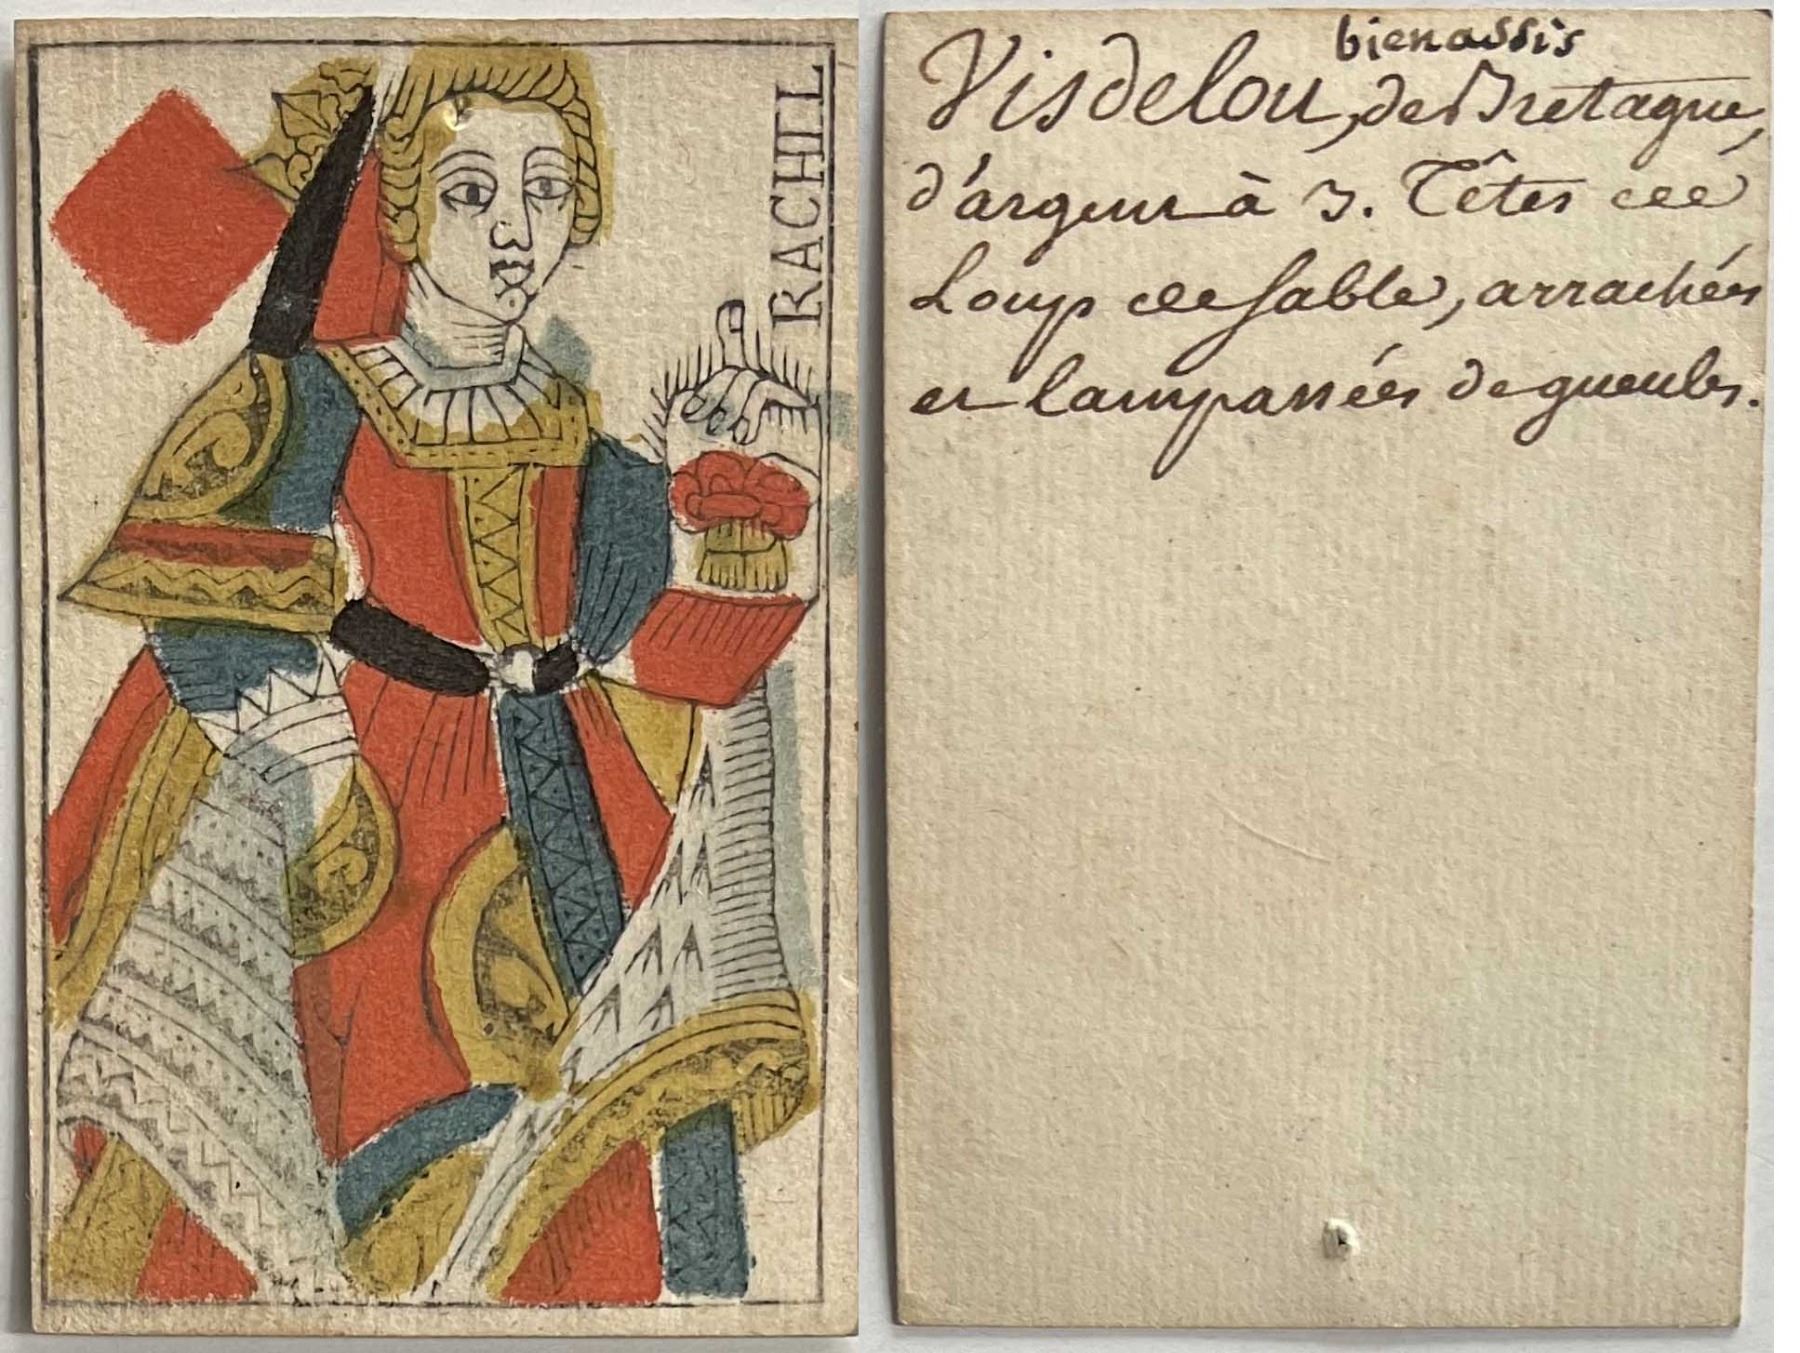 RACHEL
bienassis
Visdelou, de Bretagne,
d'argent à 3. Têtes de
Loup de sable, arrachées
et lampassées de gueules.